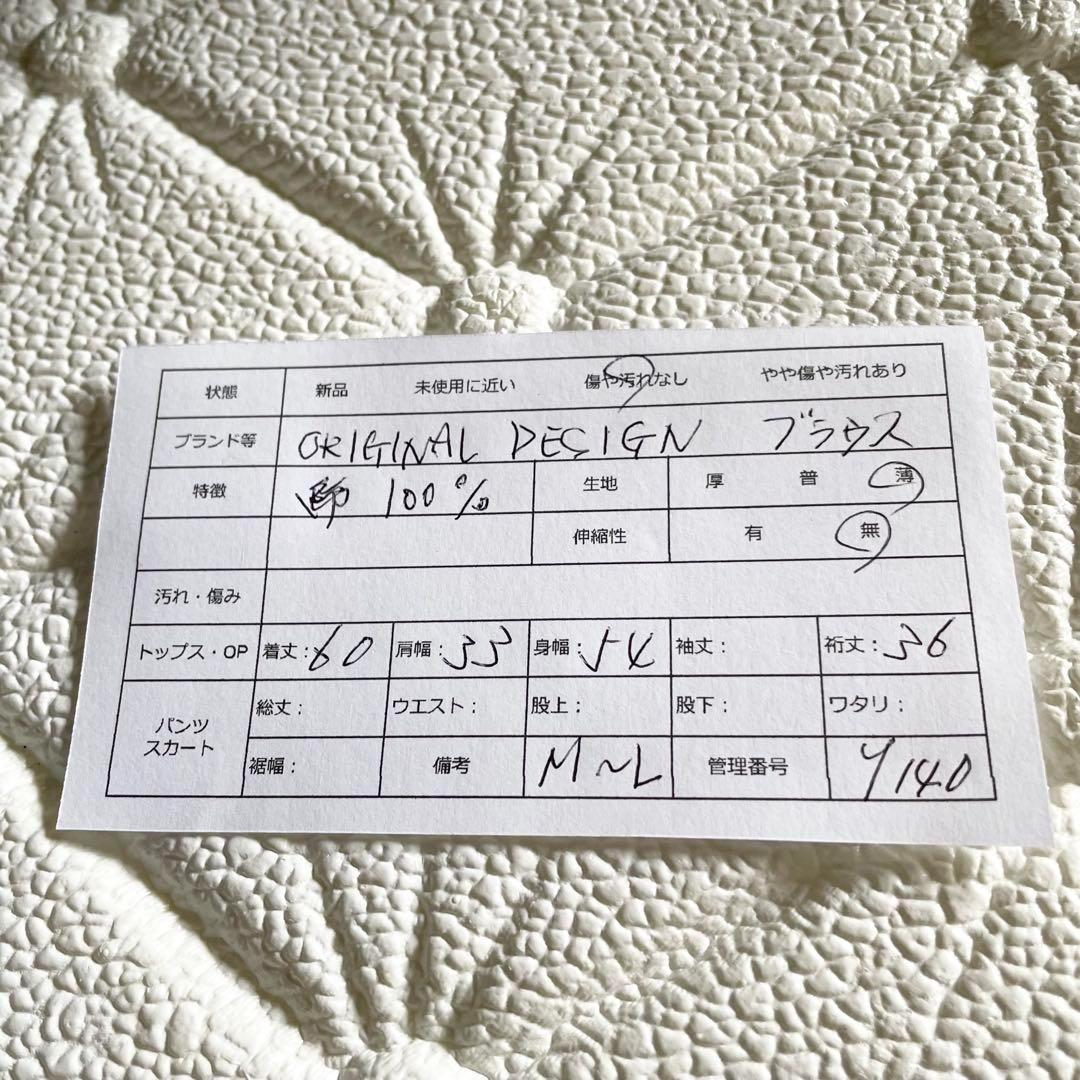 状態 新品 未使用に近い 傷や汚れなし やや傷や汚れあり
ブランド等 ORIGINAL DESIGN ブラウス
特徴 100% 生地 厚 普 薄
伸縮性 有 無
汚れ・傷み
トップス・OP 着丈:60 肩幅:33 身幅:54 袖丈: 裄丈:36
パンツ スカート 総丈: ウエスト: 股上: 股下: ワタリ:
裾幅: 備考 M~L 管理番号 Y140